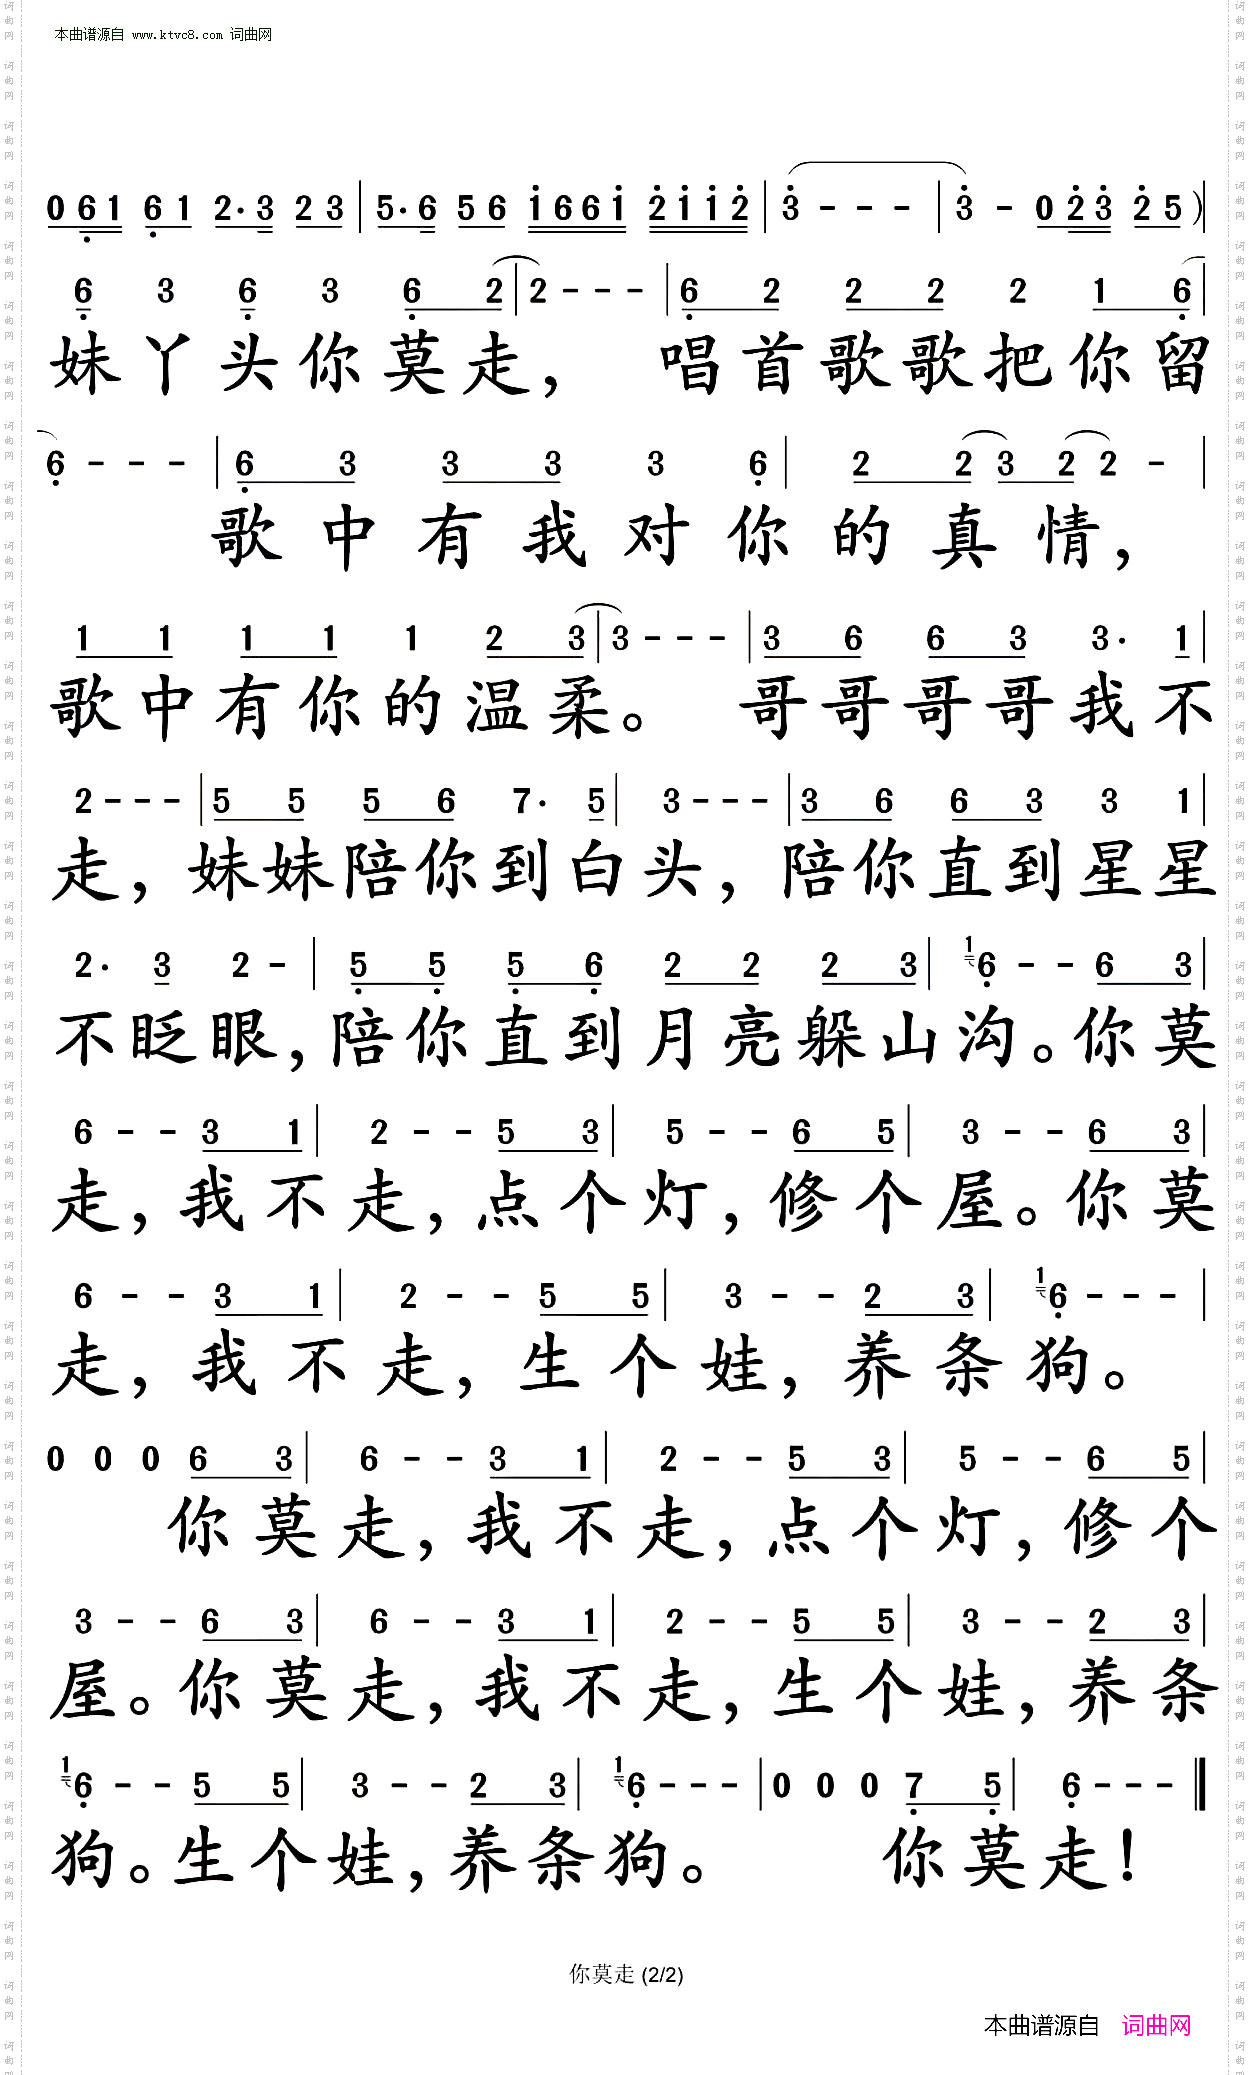 本曲谱源自 www.ktvc8.com 词曲网
0 6 1 6 1 2· 3 2 3 | 5· 6 5 6 1 6 6 1 2 1 1 2 | 3 - - - | 3 - 0 2 3 2 5 )|
6 3 6 3 6 2 | 2 - - - | 6 2 2 2 2 1 6 |
妹丫头你莫走， 唱首歌歌把你留
6 - - - | 6 3 3 3 3 6 | 2 2 3 2 2 - |
歌中有我对你的真情，
1 1 1 1 1 2 3 | 3 - - - | 3 6 6 3 3· 1 |
歌中有你的温柔。 哥哥哥哥我不
2 - - - | 5 5 5 6 7· 5 | 3 - - - | 3 6 6 3 3 1 |
走，妹妹陪你到白头，陪你直到星星
2· 3 2 - | 5 5 5 6 2 2 2 3 | 1 6 - - 6 3 |
不眨眼，陪你直到月亮躲山沟。你莫
6 - - 3 1 | 2 - - 5 3 | 5 - - 6 5 | 3 - - 6 3 |
走，我不走，点个灯，修个屋。你莫
6 - - 3 1 | 2 - - 5 5 | 3 - - 2 3 | 1 6 - - - |
走，我不走，生个娃，养条狗。
0 0 0 6 3 | 6 - - 3 1 | 2 - - 5 3 | 5 - - 6 5 |
你莫走，我不走，点个灯，修个
3 - - 6 3 | 6 - - 3 1 | 2 - - 5 5 | 3 - - 2 3 |
屋。你莫走，我不走，生个娃，养条
1 6 - - 5 5 | 3 - - 2 3 | 1 6 - - - | 0 0 0 7 5 | 6 - - - ‖
狗。生个娃，养条狗。 你莫走！
你莫走 (2/2)
本曲谱源自 词曲网